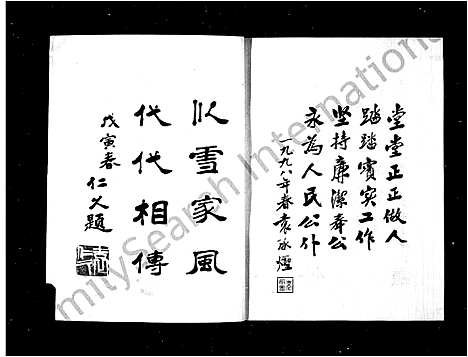 堂堂正正做人
踏踏實实工作
坚持廉潔奉公
永为人民公仆
一九九八年春袁承
以雪家風
代代相傳
戊寅春 仁义題
FamilySearch International